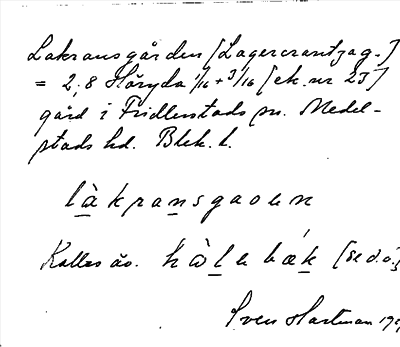 Lakransgården [Lagercrantzag.]
= 2,8 Höryda 1/16 + 3/16 [ek. nr 23]
gård i Fridlevstads sn. Medel-
stads hd. Blek. l.
làkransgaoen
Kallas äv. hàle bæk [se d.o.]
Sven Hartman